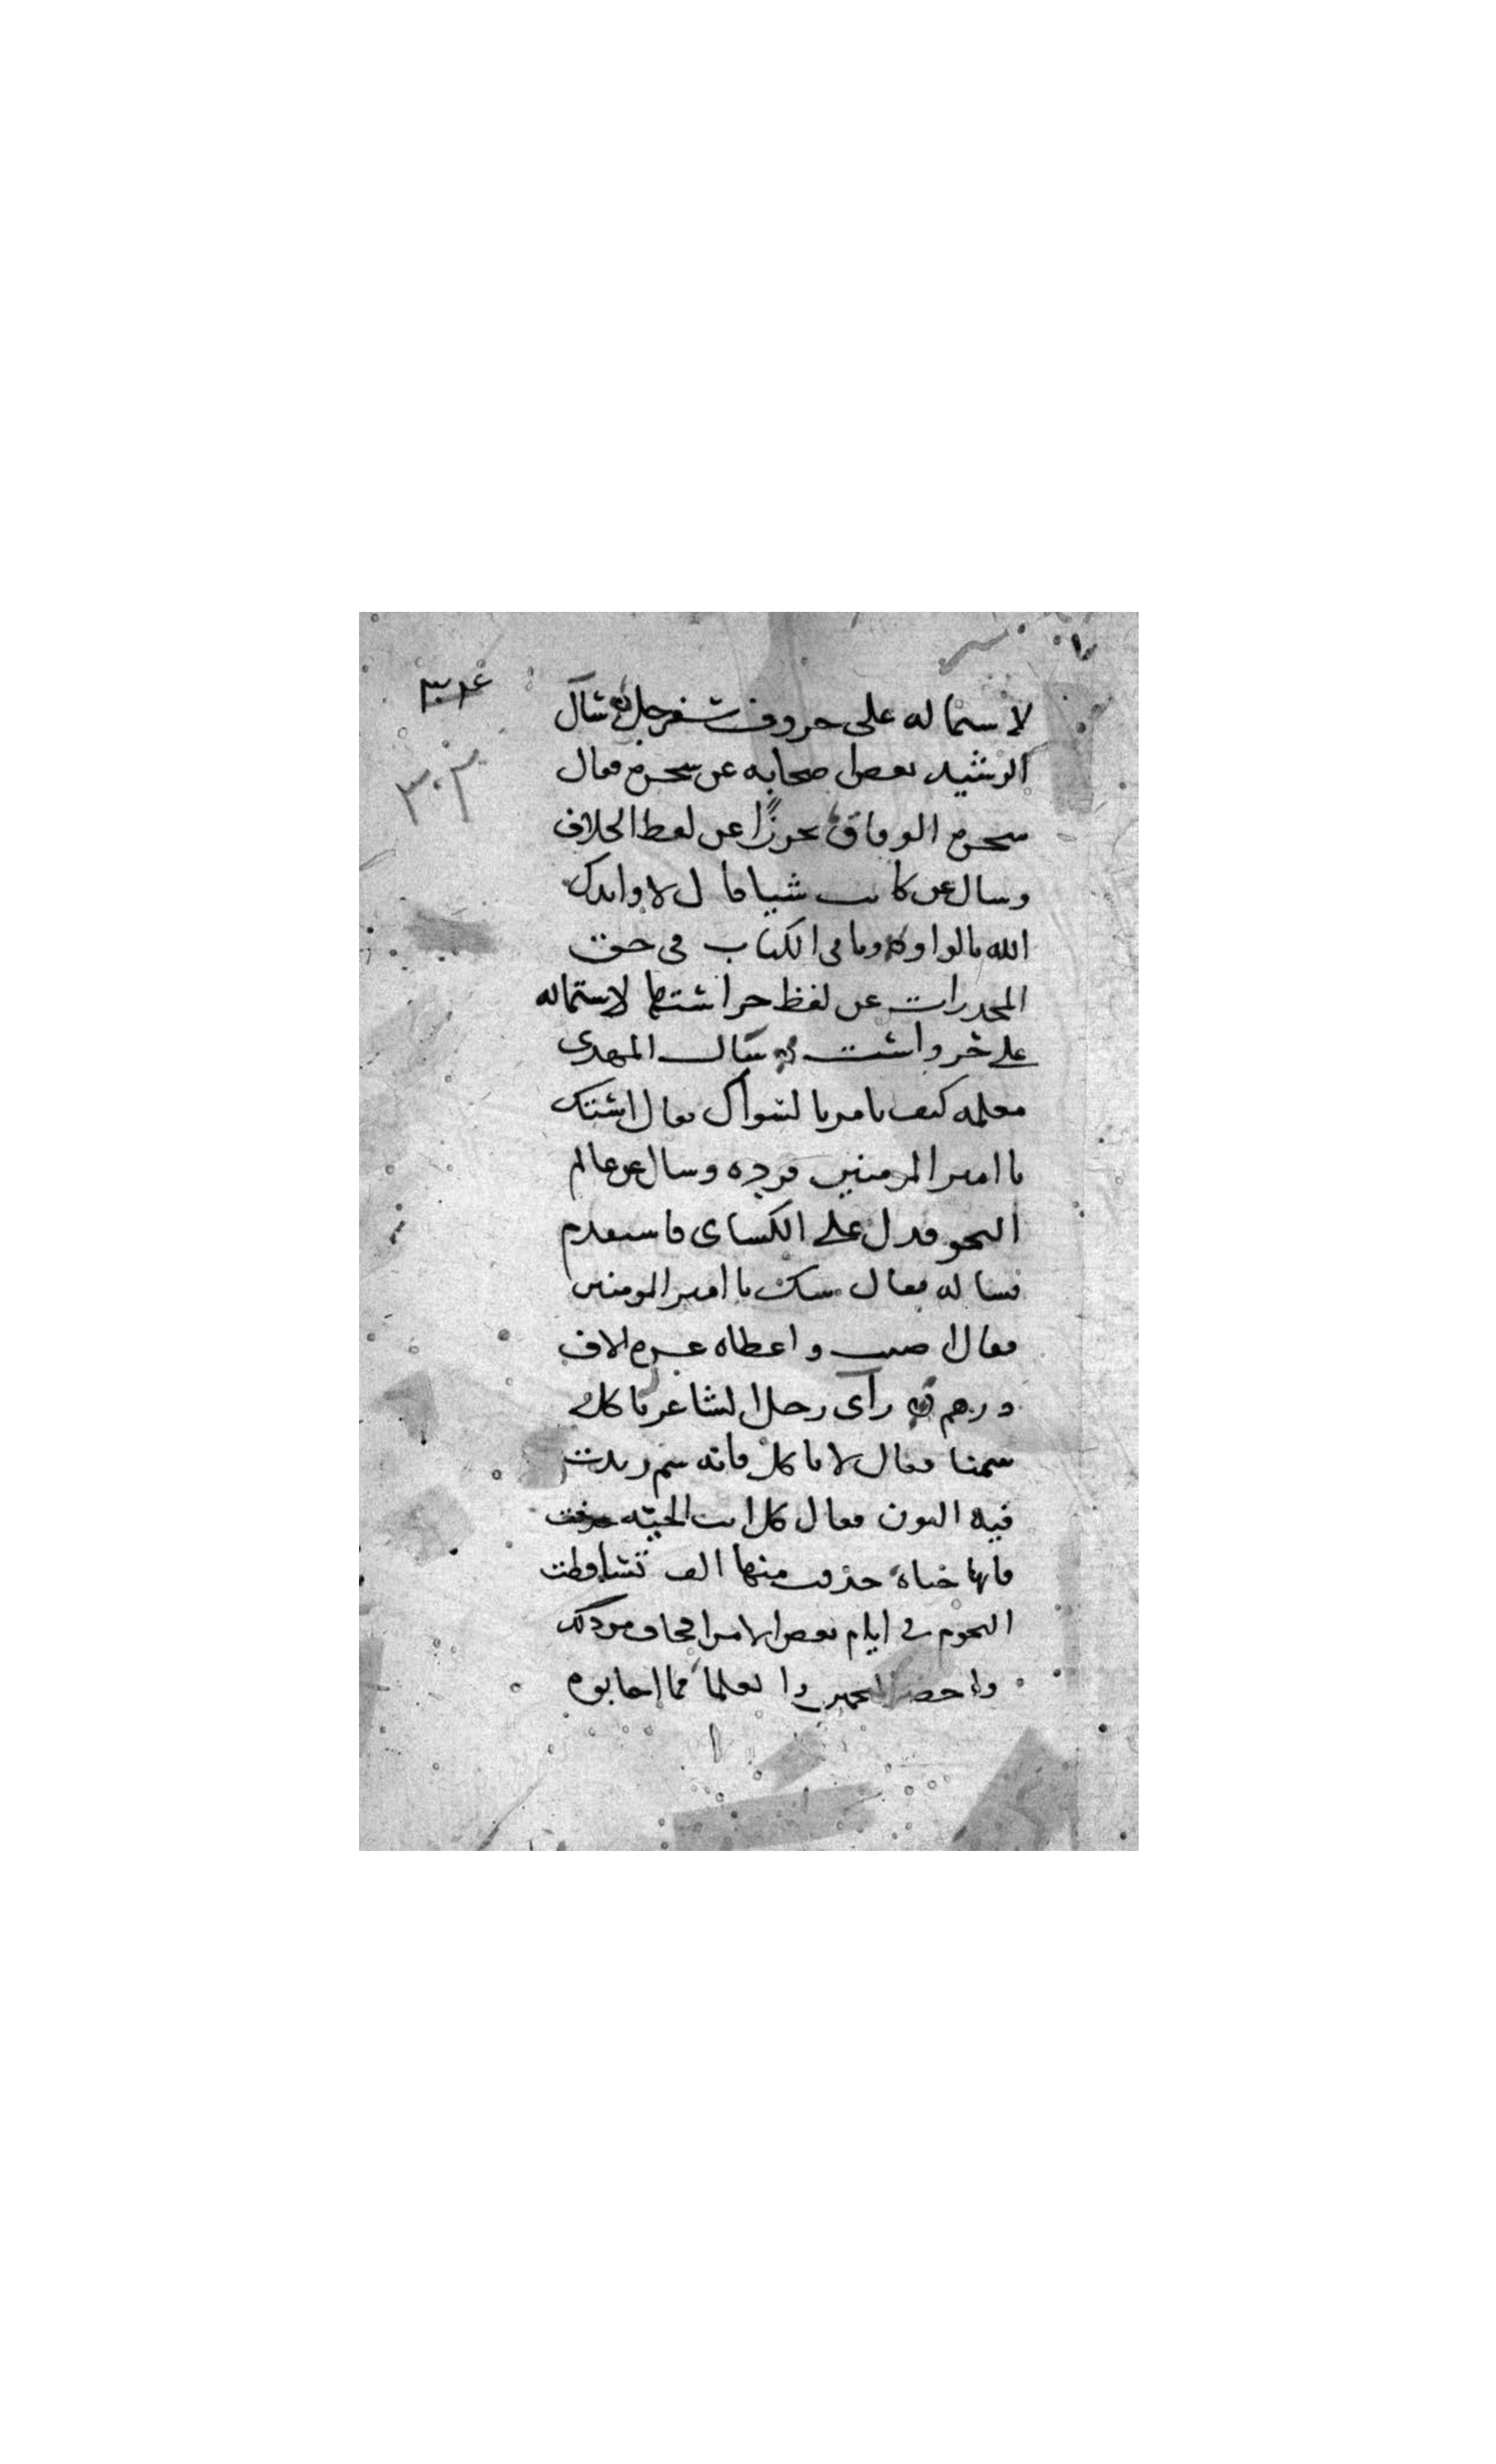 ٣٠٤
٣٠٣
لاستماله على حروف شفرجل سأل
الرشيد بعض اصحابه عن شجره فقال
شجره الوفاق تحرزًا عن لفظ الخلاف
وسال عن كاتب شيا فقال لا وايدك
الله بالواو وما في الكتاب في حق
المخدرات عن لفظ حراستها لاستماله
على خر واست سأل المهدي
معلمه كيف تامر بالسواك فقال استك
يا امير المومنين فرده وسال عن عالم
النحو فدل على الكساى فاستقدم
فساله فقال سك يا امير المومنين
فقال اصبت واعطاه عشره الاف
درهم رأى رجل الشاعر ياكل
سمنا فقال لا تاكل فانه سم زيدت
فيه النون فقال كل انت الحيه
فانها حياة حذفت منها الف تساقطت
النجوم في ايام بعض الامرا فخاف من ذلك
واحضر المنجمين والعلماء فما اجابوه